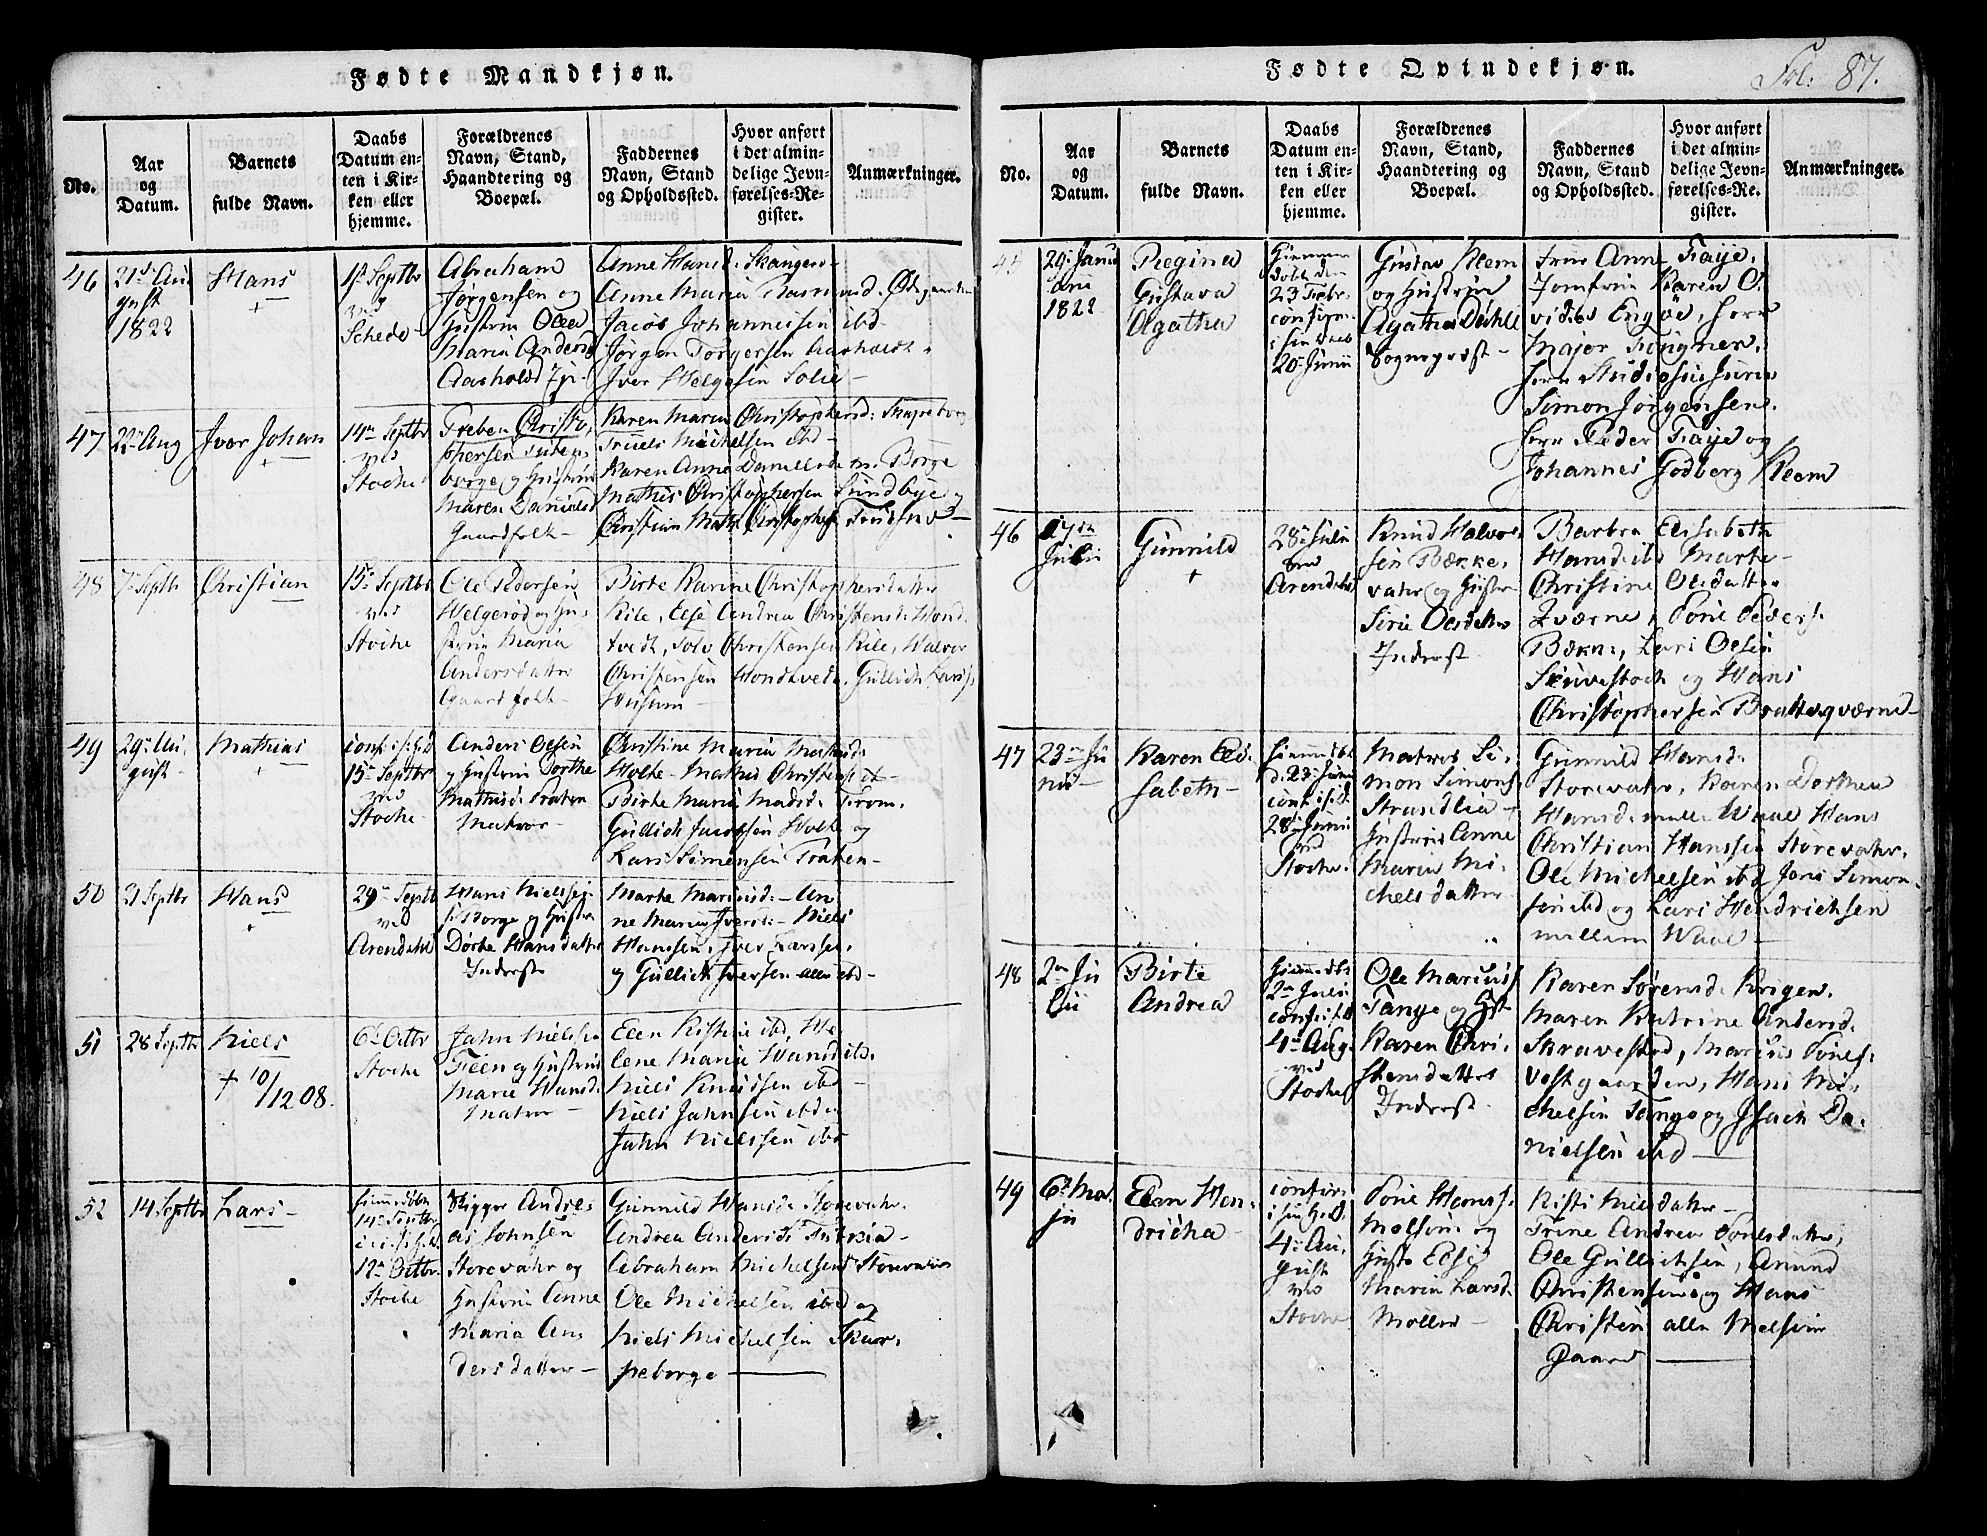 Fødte Mandkjøn.
No.
Aar
og
Datum.
Barnets
fulde Navn.
Daabs
Datum en-
ten i Kir-
ken eller
hjemme.
Forældrenes
Navn, Stand,
Haandtering og
Boepæl.
Faddernes
Navn, Stand
og Opholdssted.
Hvor anført
i det almin-
delige Jevn-
førelses-Re-
gister.
Anmærkninger.
46
21d Au
gust
1822
Hans
+
1st Septbr
ved
Abraham
Jørgensen og
Hustru Olea
Maria Anders
Aasholdt
Anne Hansd. Skanger
Anne Maria Rasmusd.
Jacob Johannessen ibd
Jørgen Torgersen Aasholdt
Iver Helgesen Solie
47
22n Aug
Iver Johan
+
14n Septbr
ved
Stocke
Preben Christo
phersen
borge og Hustrue
Maren Daniels
Gaardfolk
Karen Maria Christophersd:
Truels Michelsen ibd
Karen Anne Danielsd m. Borge
Mathis Christophersen Sundbye og
Christian Math Christophers
48
7 Septbr
Christian
15n Septbr
ved
Stocke
Ole Pedersen
Helgerød og Hu
strue Maria
Andersdatter
Gaardfolk
Birte Karine Christophersdatter
Kile, Else Andrea Christensd: Hond
tvedt, Solv Christensen Kile, Halvor
Christensen Hondtvedt, Gullich Lars
Husum
49
29n Au
gust
Mathias
+
15n Septbr
ved
Stocke
Anders Olsen
og Hustrue Dorthe
Mathisd. Traken
Matros
Christine Maria Mathisd:
Holte Mathis Christens
Birte Maria Madsd. From
Gullich Jacobsen Holte og
Lars Simensen Traken
50
21 Septbr
Hans
+
29n Septb
ved
Arendahl
Hans Nielssen
Borge og Hustru
Dorte Hansdatter
Inderst
Marte Mariusd An
ne Maria Iversd Niels
Hanssen, Iver Larsse
og Gullich Iversen alle ibd
51
28 Septbr
Niels
+ 10/12 08.
6t Octbr
Stocke
Jahn Nielsse
Feen og Hustrue
Marie Hansd.
Matros
Elen Kistine ibd, He
lene Maria Hansd ibd.
Niels Knudsen ibd
Niels Jahnsen ibd
Jahn Nielssen ibd
52
14 Septbr
Lars
14d Septbr
Octbr
Stocke
Rigger Andre
as Johnsen
Storevahr og
Hustrue Anne
Maria An
dersdatter
Gunnild Hansd. Storevahr
Andrea Andersd
Abraham Michelsen Storevahr
Ole Michelsen ibd og
Niels Michelsen Skar
peborge
Fødte Qvindekjøn.
Fol: 87.
No.
Aar
og
Datum.
Barnets
fulde Navn.
Daabs
Datum en-
ten i Kir-
ken eller
hjemme.
Forældrenes
Navn, Stand,
Haandtering og
Boepæl.
Faddernes
Navn, Stand
og Opholdssted.
Hvor anført
i det almin-
delige Jevn-
førelses-Re-
gister.
Anmærkninger.
45
29. Janu
arii
1822
Regina
Gustava
Agatha
Hiemme
døbt den
23 Febr.
confirm.
20 Junii
Gustav Kleem
og Hustrue
Agatha Deihle
Sognepræst
Frue Anne Faye,
Jomfru Karen O
vidia Engøe, Herr
Major Fuegner,
Herr Studiosus Juris
Simon Jørgensen.
Herr Peder Faye og
Johannes Godberg Kleem
46
17de
Juli
Gunnild
+
28n Juli
ved
Arendahl
Knud Halvor
sen Bække
vahr og Hustru
Siri Olsdatter
Inderst
Barbra Elisabeth
Hansd ibd Marte
Christine Olsdatter
Zværne, Tønie Peders
Bække, Lars Olsen
og Hans
Christophersen Bratteqværne
47
23n Ju
nii
Karen Eli
sabeth
Hiemmedøbt
d. 23 Junii
28n Junii
ved
Stocke
Matros Si
mon Simons
Strandlia
Hustrue Anne
Maria Mi
chelsdatter
Gunnild Hansd.
Storevahr, Karen Dorthea
Hansd. mell: Waae Hans
Christian Hanssen Storevahr,
Ole Michelsen ibd Jens Simon
sen ibd og Lars Hendrichsen
mellem Waae
48
2n Ju
lii
Birte
Andrea
Hiemmedbt
2n Juli
4n Aug.
ved
Stocke
Ole Mariuss
Tange og Hust
Karen Chri
stensdatter
Inderst
Karen Sørensd. Krigen,
Maren Katrine Andersd.
Skravestad, Marius Tønes.
Vestgaarden, Hans Mi
chelsen Tange og Isach Da
nielsen ibd
49
6t Ma
ju
Elen Hen
dricha
confir
4n Au
gust
ved
Stocke
Tønie Hanss.
Melsom og
Hustr Else
Maria Larsd.
Møller
Kisti Nielsdatter
Trine Andrea Tønesdatter,
Ole Gullichsen, Amund
Christensen og Hans
Christen alle Melsom
Gaard